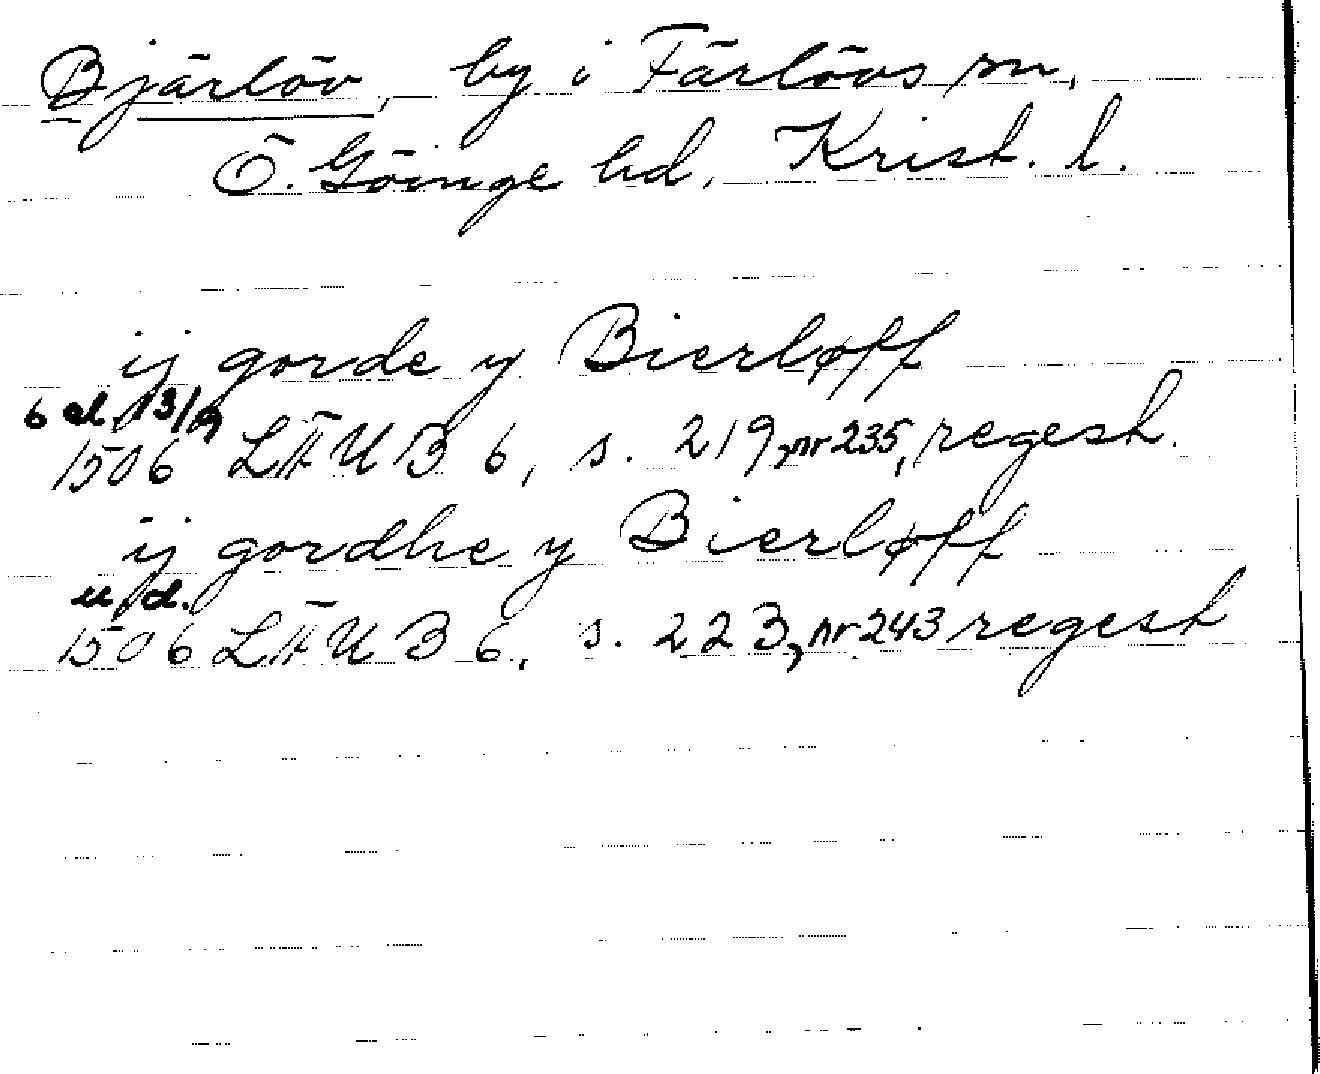 Bjärlöv, by i Färlövs sn,
Ö. Göinge hd, Krist. l.
ij gorde y Bierløff
13/9
1506 LÄUB 6, s. 219, nr 235, regest.
ij gordhe y Bierløff
u. d.
1506 LÄUB 6, s. 223, nr 243 regest